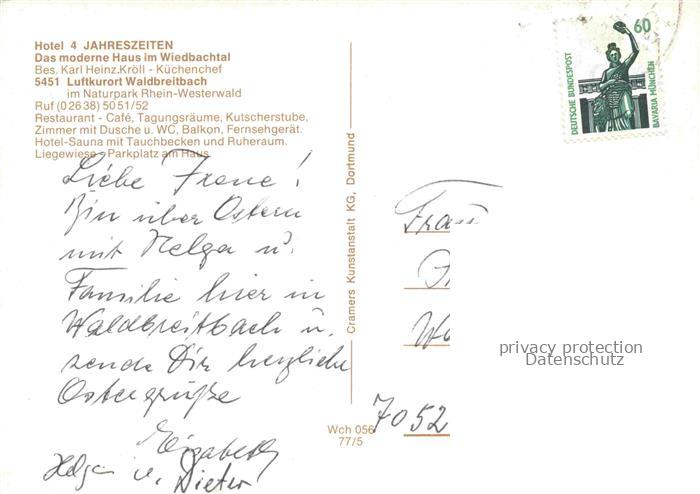 Hotel 4 JAHRESZEITEN
Das moderne Haus im Wiedbachtal
Bes. Karl Heinz.Kröll - Küchenchef
5451 Luftkurort Waldbreitbach
im Naturpark Rhein-Westerwald
Ruf (0 26 38) 50 51/52
Restaurant - Café, Tagungsräume, Kutscherstube,
Zimmer mit Dusche u. WC, Balkon, Fernsehgerät.
Hotel-Sauna mit Tauchbecken und Ruheraum.
Liegewiese - Parkplatz am Haus
Liebe Irene!
Bin über Ostern
mit Helga u.
Familie hier in
Waldbreitbach u.
sende Dir herzliche
Ostergrüße
Elisabeth
Helga u. Dieter
Cramers Kunstanstalt KG, Dortmund
Wch 056
77/5
60
DEUTSCHE BUNDESPOST
BAVARIA MÜNCHEN
Frau
7052
privacy protection
Datenschutz